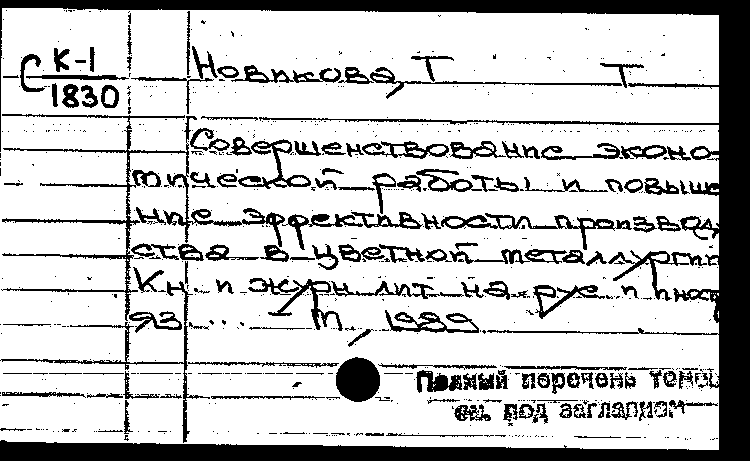 С К-1
1830
Новикова, Т Т
Совершенствование эконо-
мической работы и повыше
ние эффективности производ
ства в цветной металлургии
Кн. и журн лит на рус и иност
яз. ... – М, 1989
Полный перечень темой
см. под заглавием